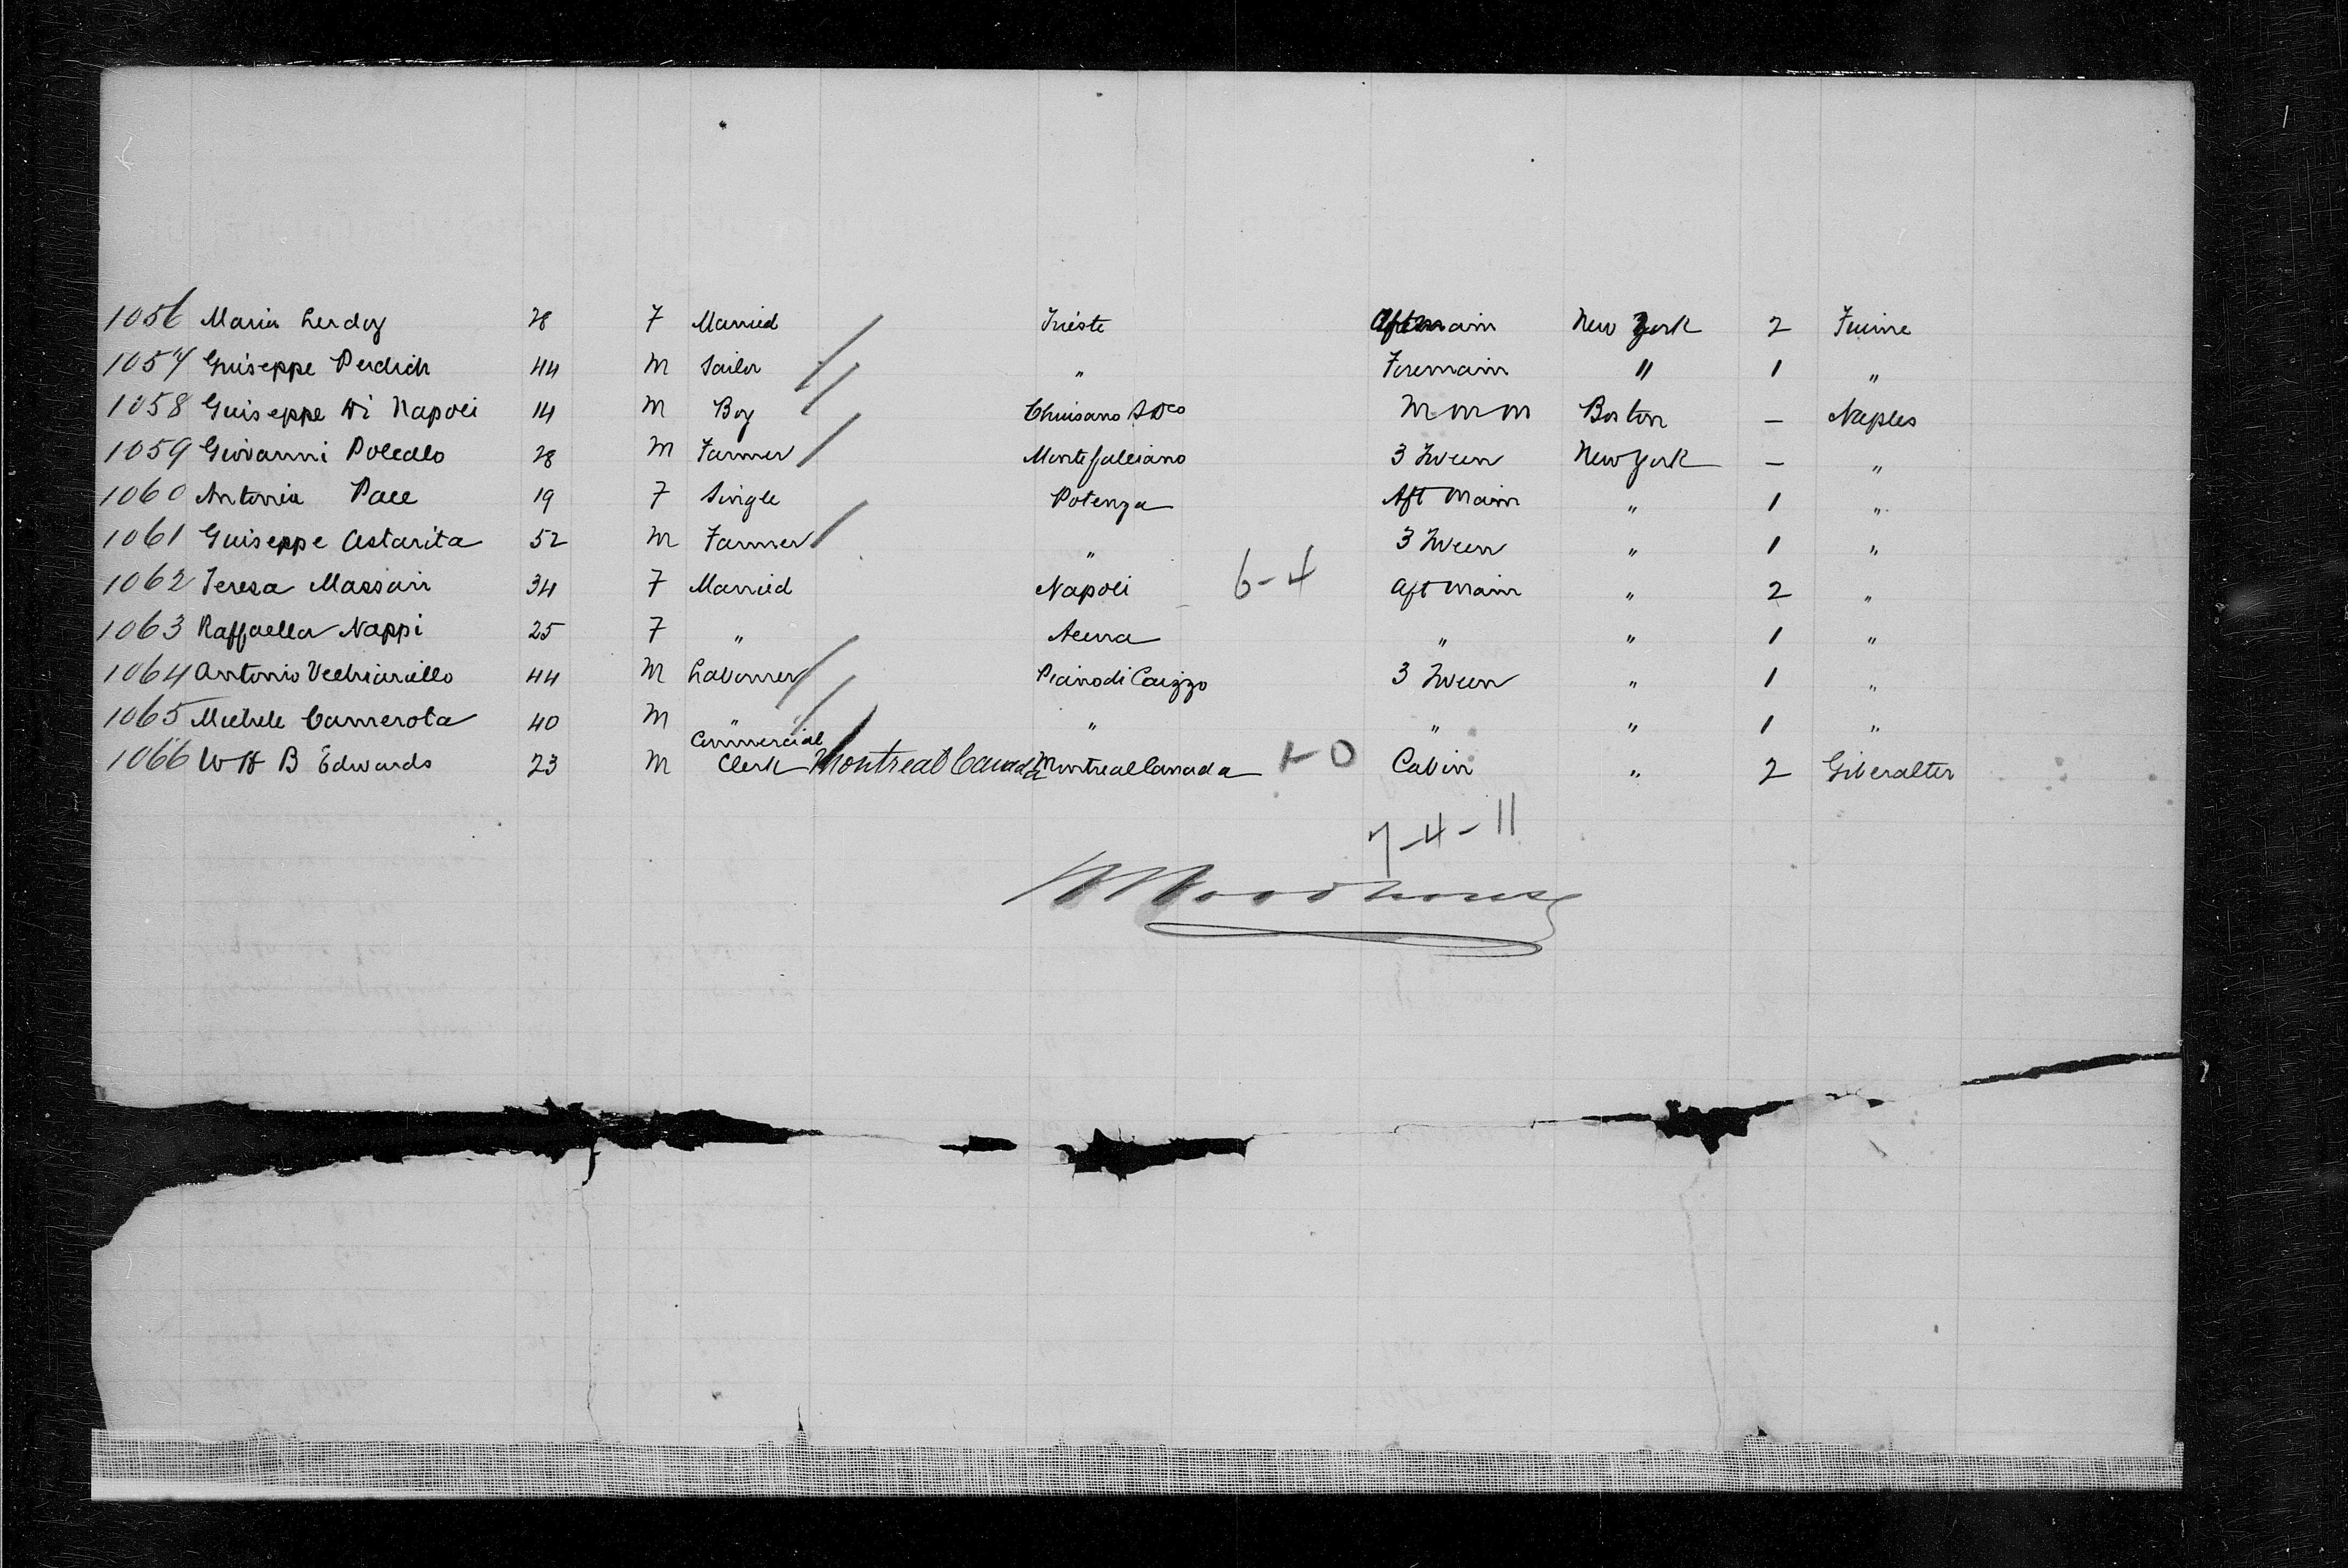 1056 Maria Lerdoz 28 F Married Trieste Aft Main New York 2 Fuime
1057 Guiseppe Perdich 44 M Sailor " Foremain " 1 "
1058 Guiseppe Di Napoli 14 M Boy Chuisano S Dco M M M Boston – Naples
1059 Giovanni Poledlo 28 M Farmer Montefalciano 3 Tween New York – "
1060 Antonia Pace 19 F Single Potenza Aft Main " 1 "
1061 Guiseppe Astarita 52 M Farmer " 3 Tween " 1 "
1062 Teresa Massari 34 F Married Napoli 6-4 Aft Main " 2 "
1063 Raffaella Nappi 25 F " Acerra " " 1 "
1064 Antonio Vechiariello 44 M Labourer Piano di Caizzo 3 Tween " 1 "
1065 Michele Camerota 40 M " " " " 1 "
1066 W H B Edwards 23 M Commercial Clerk Montreal Canada Montreal Canada 1-0 Cabin " 2 Giberalter
7-4-11
Woodhouse